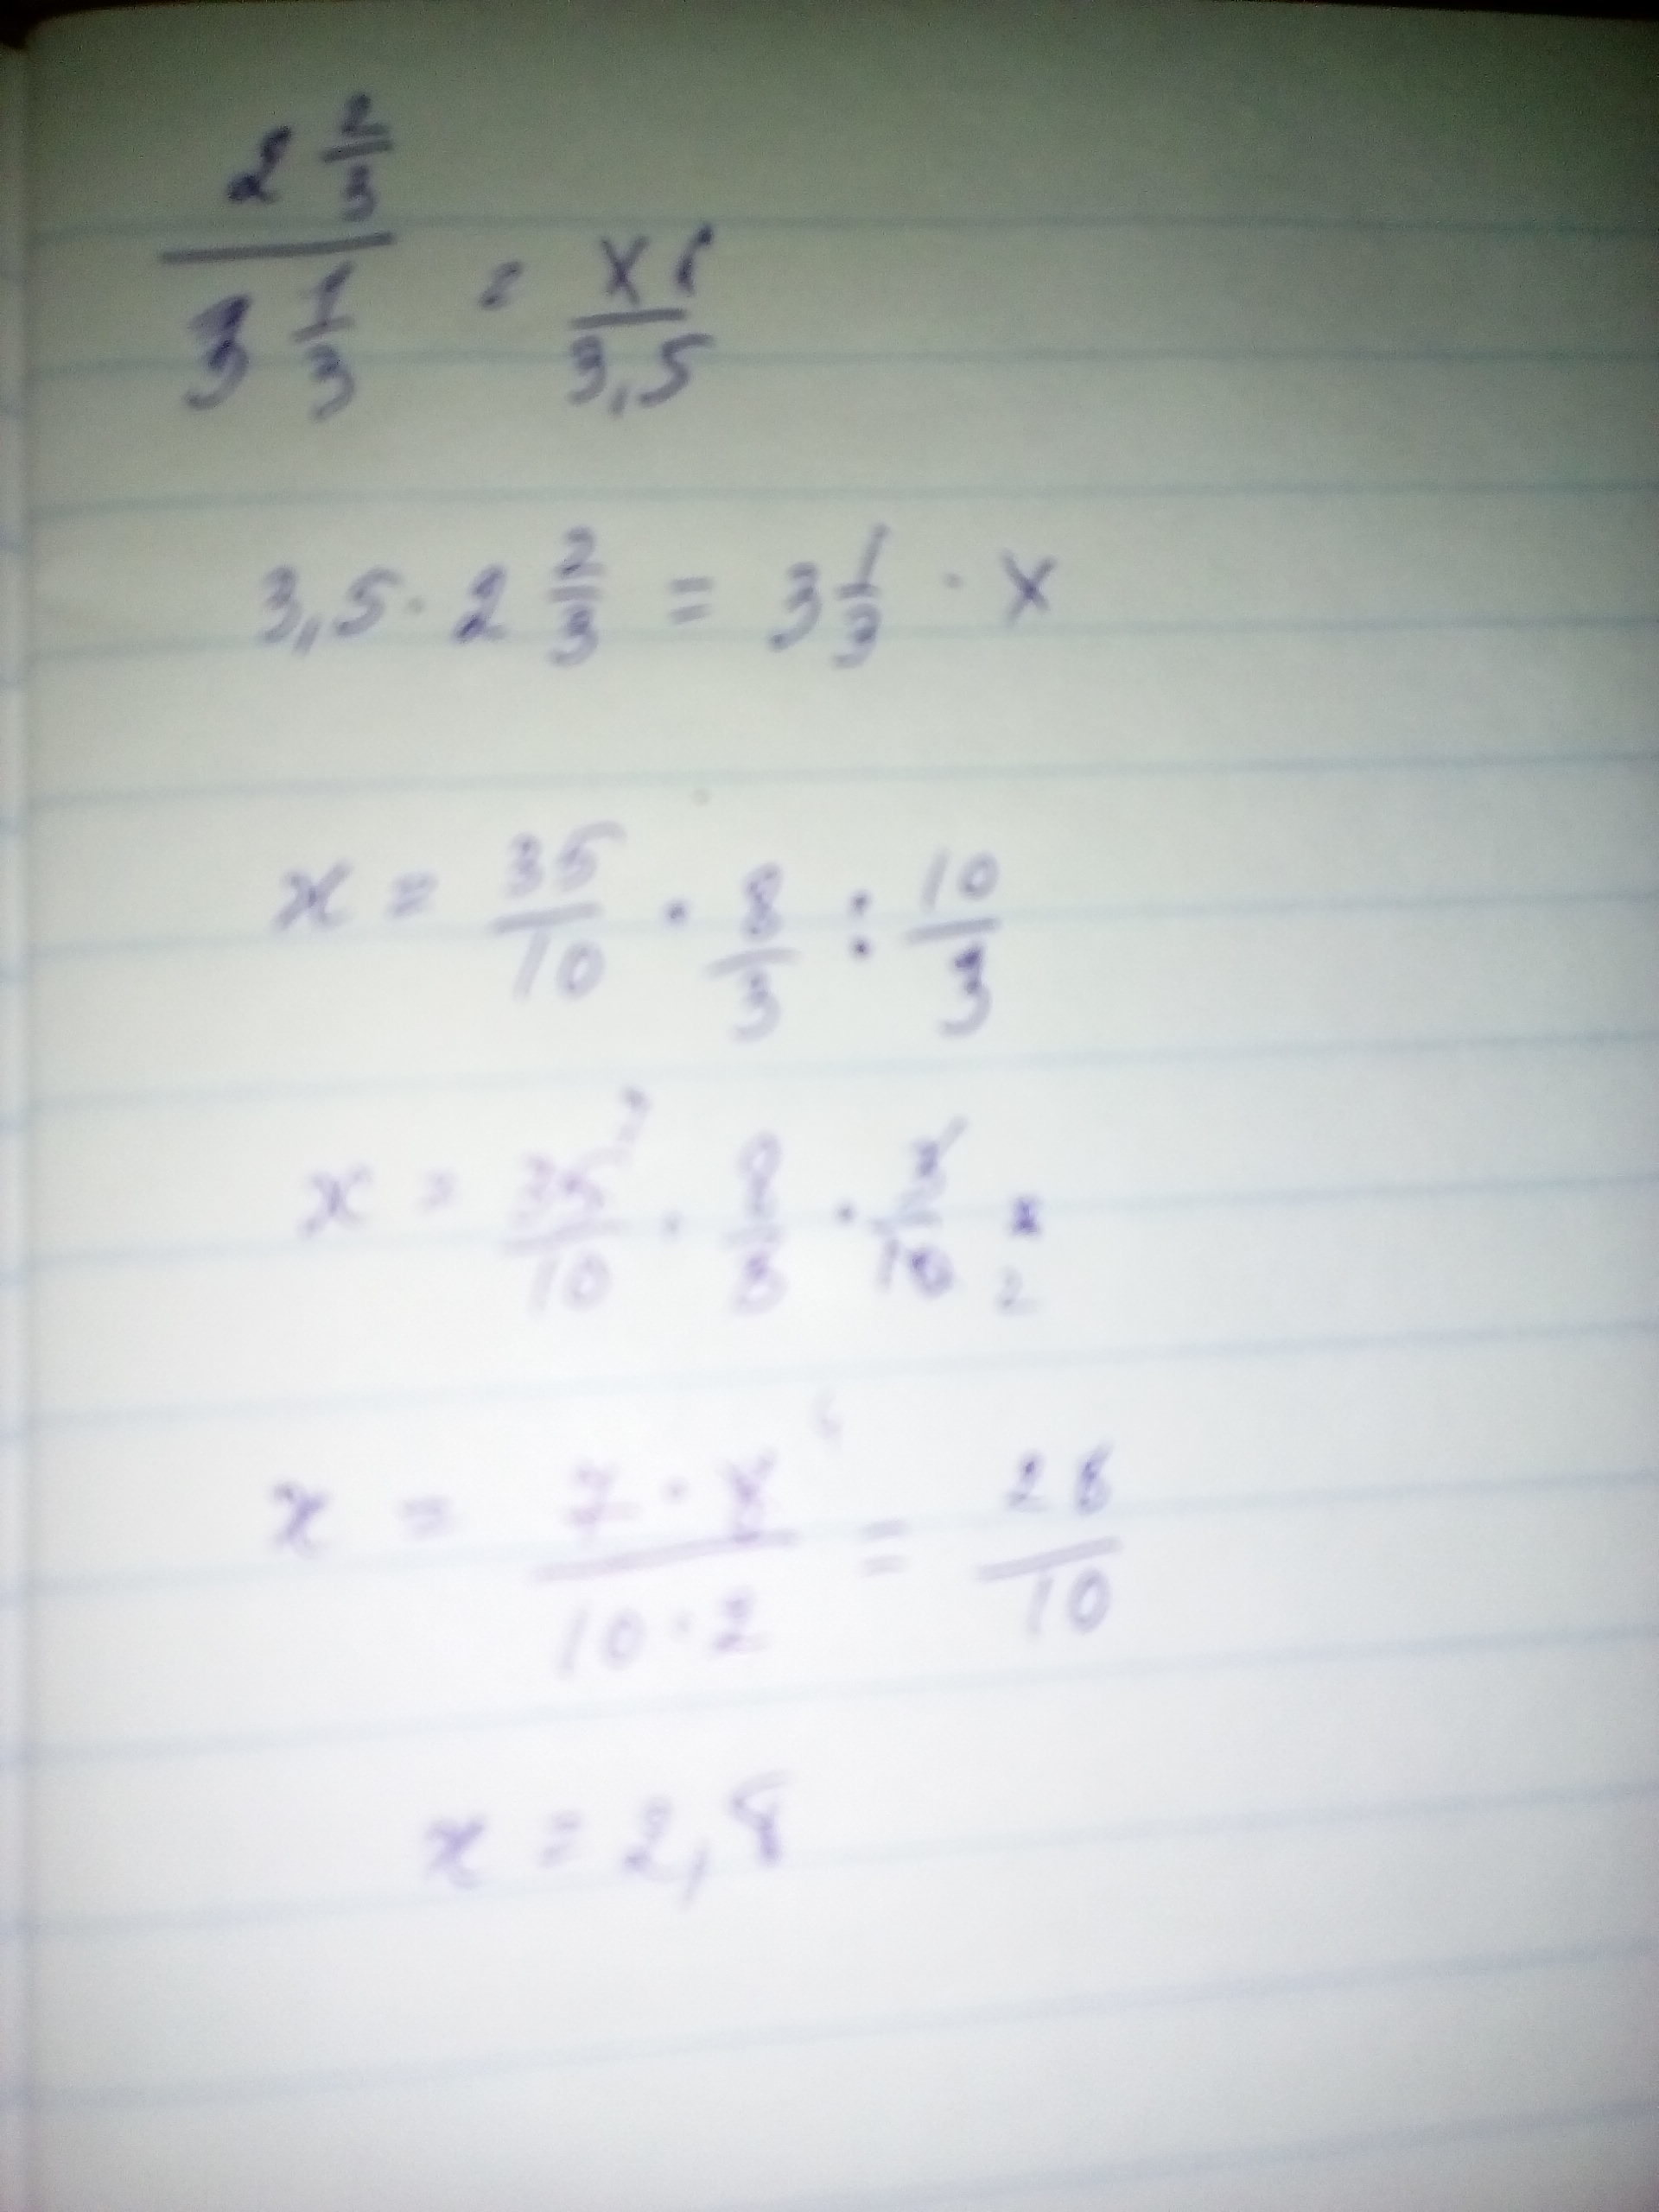 2 2/3 / 3 1/3 = x / 3,5
3,5 · 2 2/3 = 3 1/3 · x
x = 35/10 · 8/3 : 10/3
x = 35/10 · 8/3 · 3/10
7 2
x = 7 · 8 / 10 · 2 = 28/10
x = 2,8